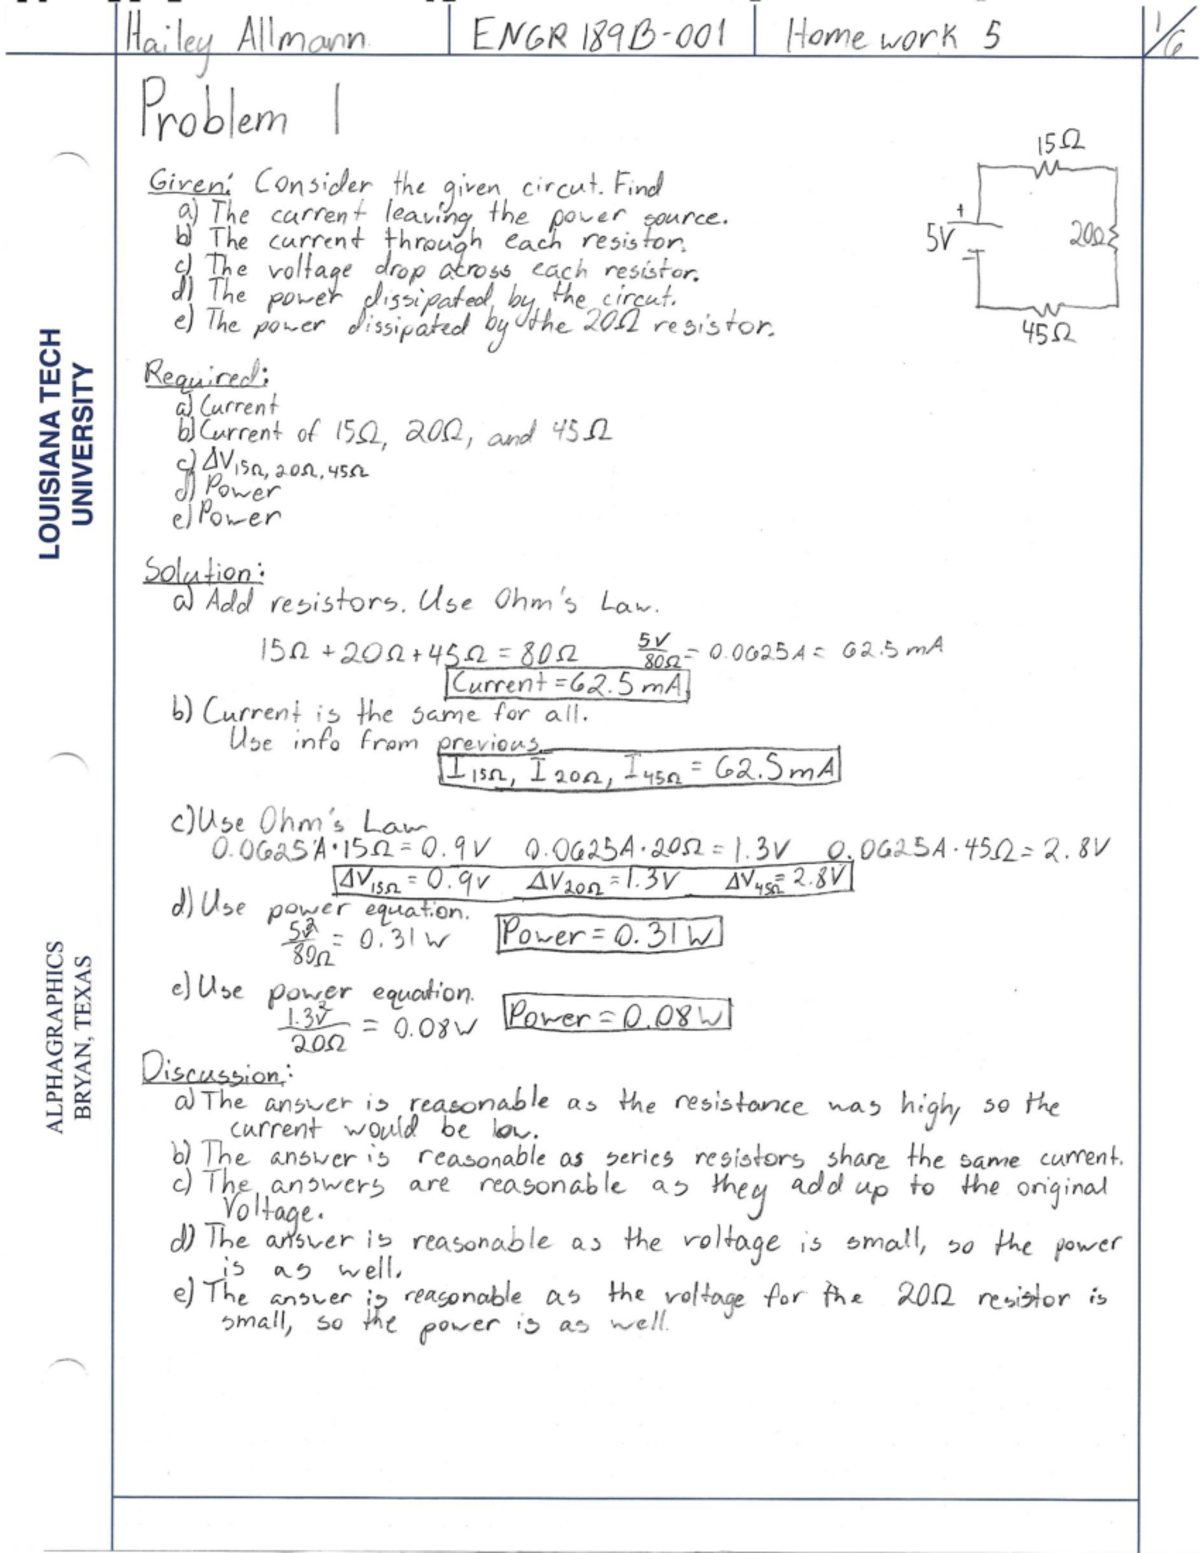 Hailey Allmann ENGR 189B-001 Homework 5 1/6
Problem 1
Given: Consider the given circut. Find
a) The current leaving the power source.
b) The current through each resistor.
c) The voltage drop across each resistor.
d) The power dissipated by the circut.
e) The power dissipated by the 20Ω resistor.
15Ω
5V + -
20Ω
45Ω
Required:
a) Current
b) Current of 15Ω, 20Ω, and 45Ω
c) ΔV15Ω, 20Ω, 45Ω
d) Power
e) Power
LOUISIANA TECH
UNIVERSITY
Solution:
a) Add resistors. Use Ohm's Law.
15Ω + 20Ω + 45Ω = 80Ω 5V/80Ω = 0.0625A = 62.5 mA
Current = 62.5 mA
b) Current is the same for all.
Use info from previous.
I15Ω, I20Ω, I45Ω = 62.5mA
c) Use Ohm's Law
0.0625A·15Ω = 0.9V 0.0625A·20Ω = 1.3V 0.0625A·45Ω = 2.8V
ΔV15Ω = 0.9V ΔV20Ω = 1.3V ΔV45Ω = 2.8V
d) Use power equation.
5V²/80Ω = 0.31W Power = 0.31W
e) Use power equation.
1.3V²/20Ω = 0.08W Power = 0.08W
ALPHAGRAPHICS
BRYAN, TEXAS
Discussion:
a) The answer is reasonable as the resistance was high, so the
current would be low.
b) The answer is reasonable as series resistors share the same current.
c) The answers are reasonable as they add up to the original
Voltage.
d) The answer is reasonable as the voltage is small, so the power
is as well.
e) The answer is reasonable as the voltage for the 20Ω resistor is
small, so the power is as well.